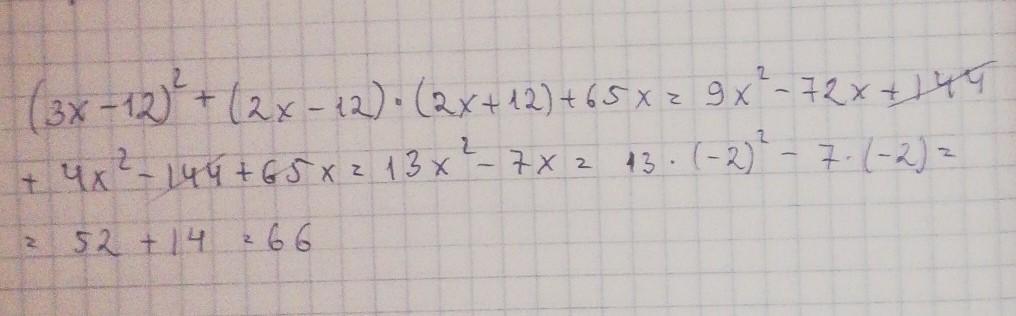 (3x-12)²+(2x-12)·(2x+12)+65x=9x²-72x+144
+4x²-144+65x=13x²-7x=13·(-2)²-7·(-2)=
=52+14=66